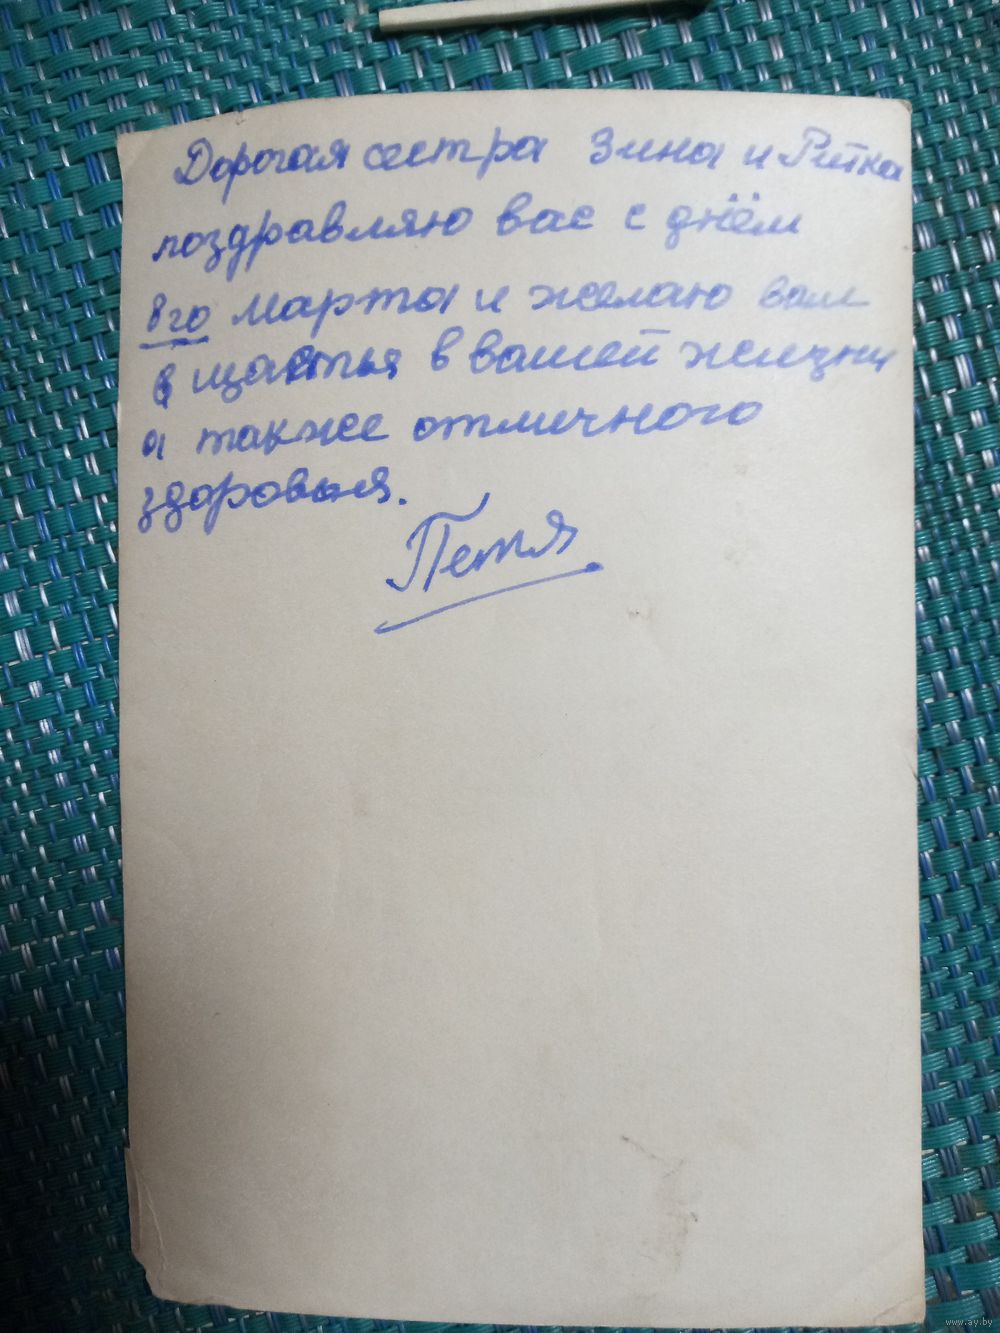 Дорогая сестра Зина и Ритка
поздравляю вас с днём
8го марта и желаю вам
щастья в вашей жизни
а также отличного
здоровья.
Петя
www.ay.by